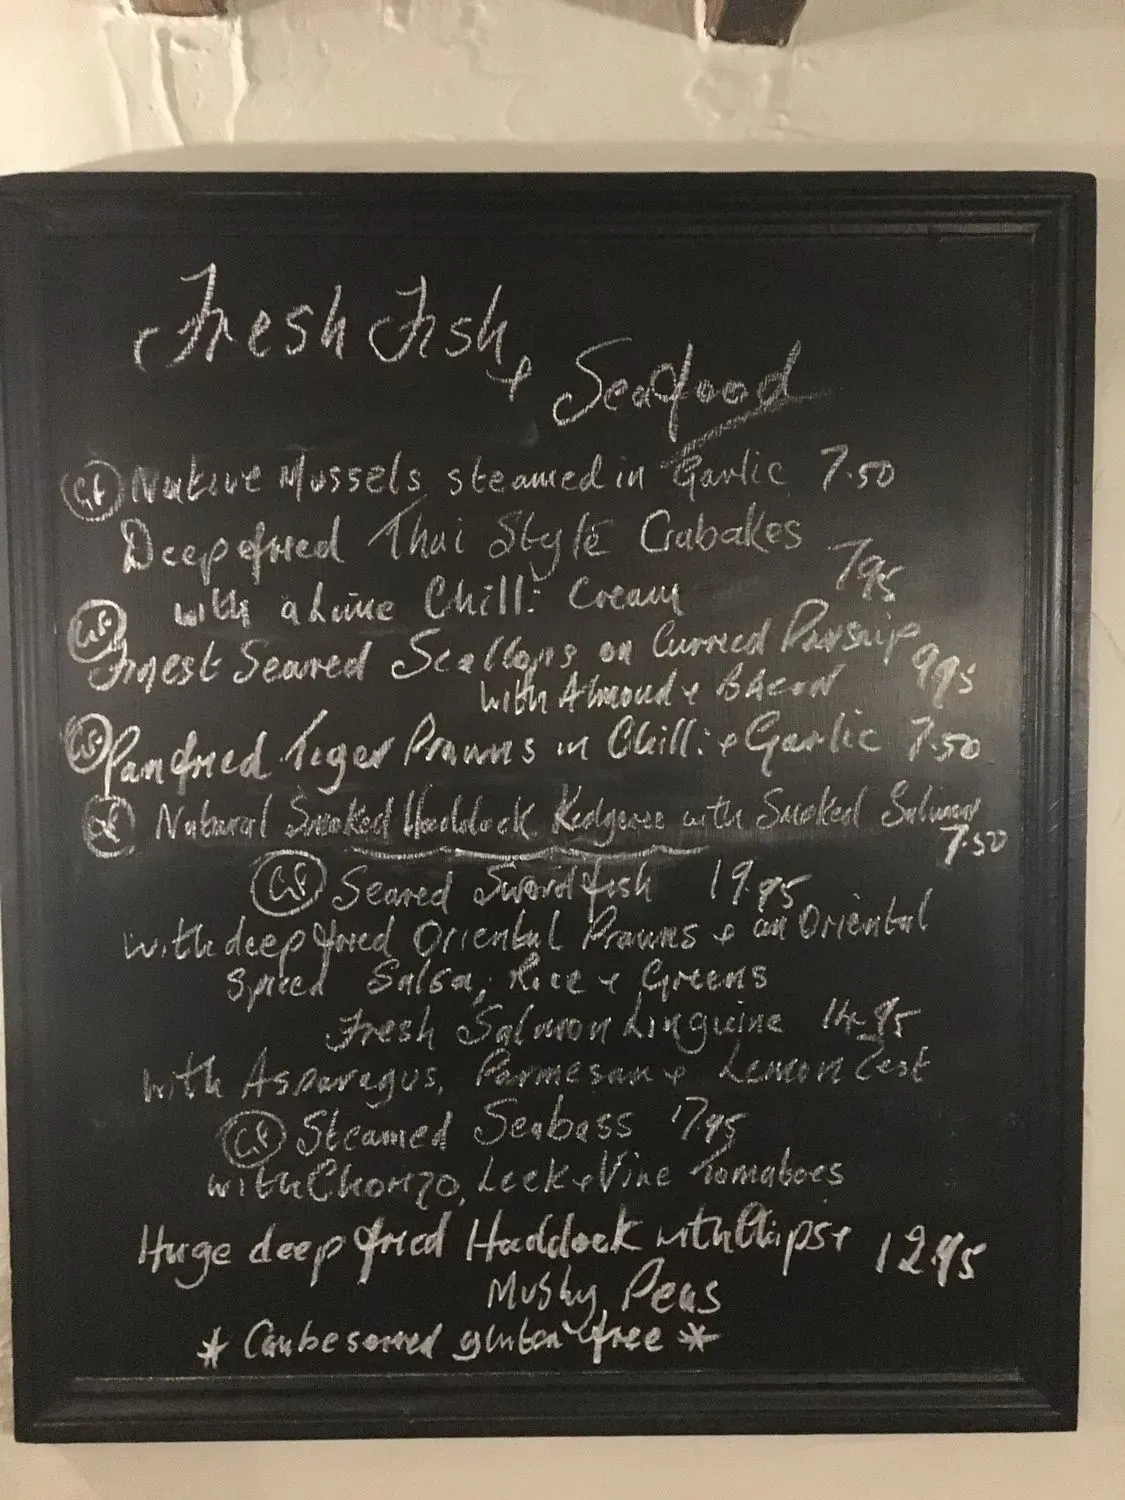 Fresh Fish
+ Seafood
GF Native Mussels steamed in Garlic 7.50
Deepfried Thai Style Crabakes
with a Lime Chilli Cream 7.95
GF Finest Seared Scallops on Curried Parsnip
with Almond + Bacon 9.95
GF Panfried Tiger Prawns in Chilli + Garlic 7.50
GF Natural Smoked Haddock Kedgeree with Smoked Salmon
7.50
GF Seared Swordfish 19.95
with deepfried Oriental Prawns + an Oriental
Spiced Salsa, Rice + Greens
Fresh Salmon Linguine 14.95
with Asparagus, Parmesan + Lemon Zest
GF Steamed Seabass 17.95
with Chorizo, Leek + Vine Tomatoes
Huge deepfried Haddock with Chips + 12.95
Mushy Peas
* Can be served gluten free *